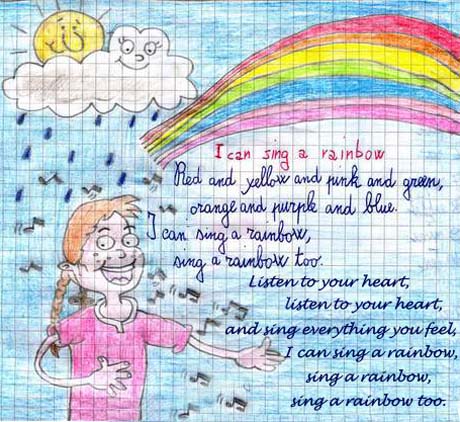 I can sing a rainbow
Red and yellow and pink and green,
orange and purple and blue.
I can sing a rainbow,
sing a rainbow too.
Listen to your heart,
listen to your heart,
and sing everything you feel,
I can sing a rainbow,
sing a rainbow,
sing a rainbow too.